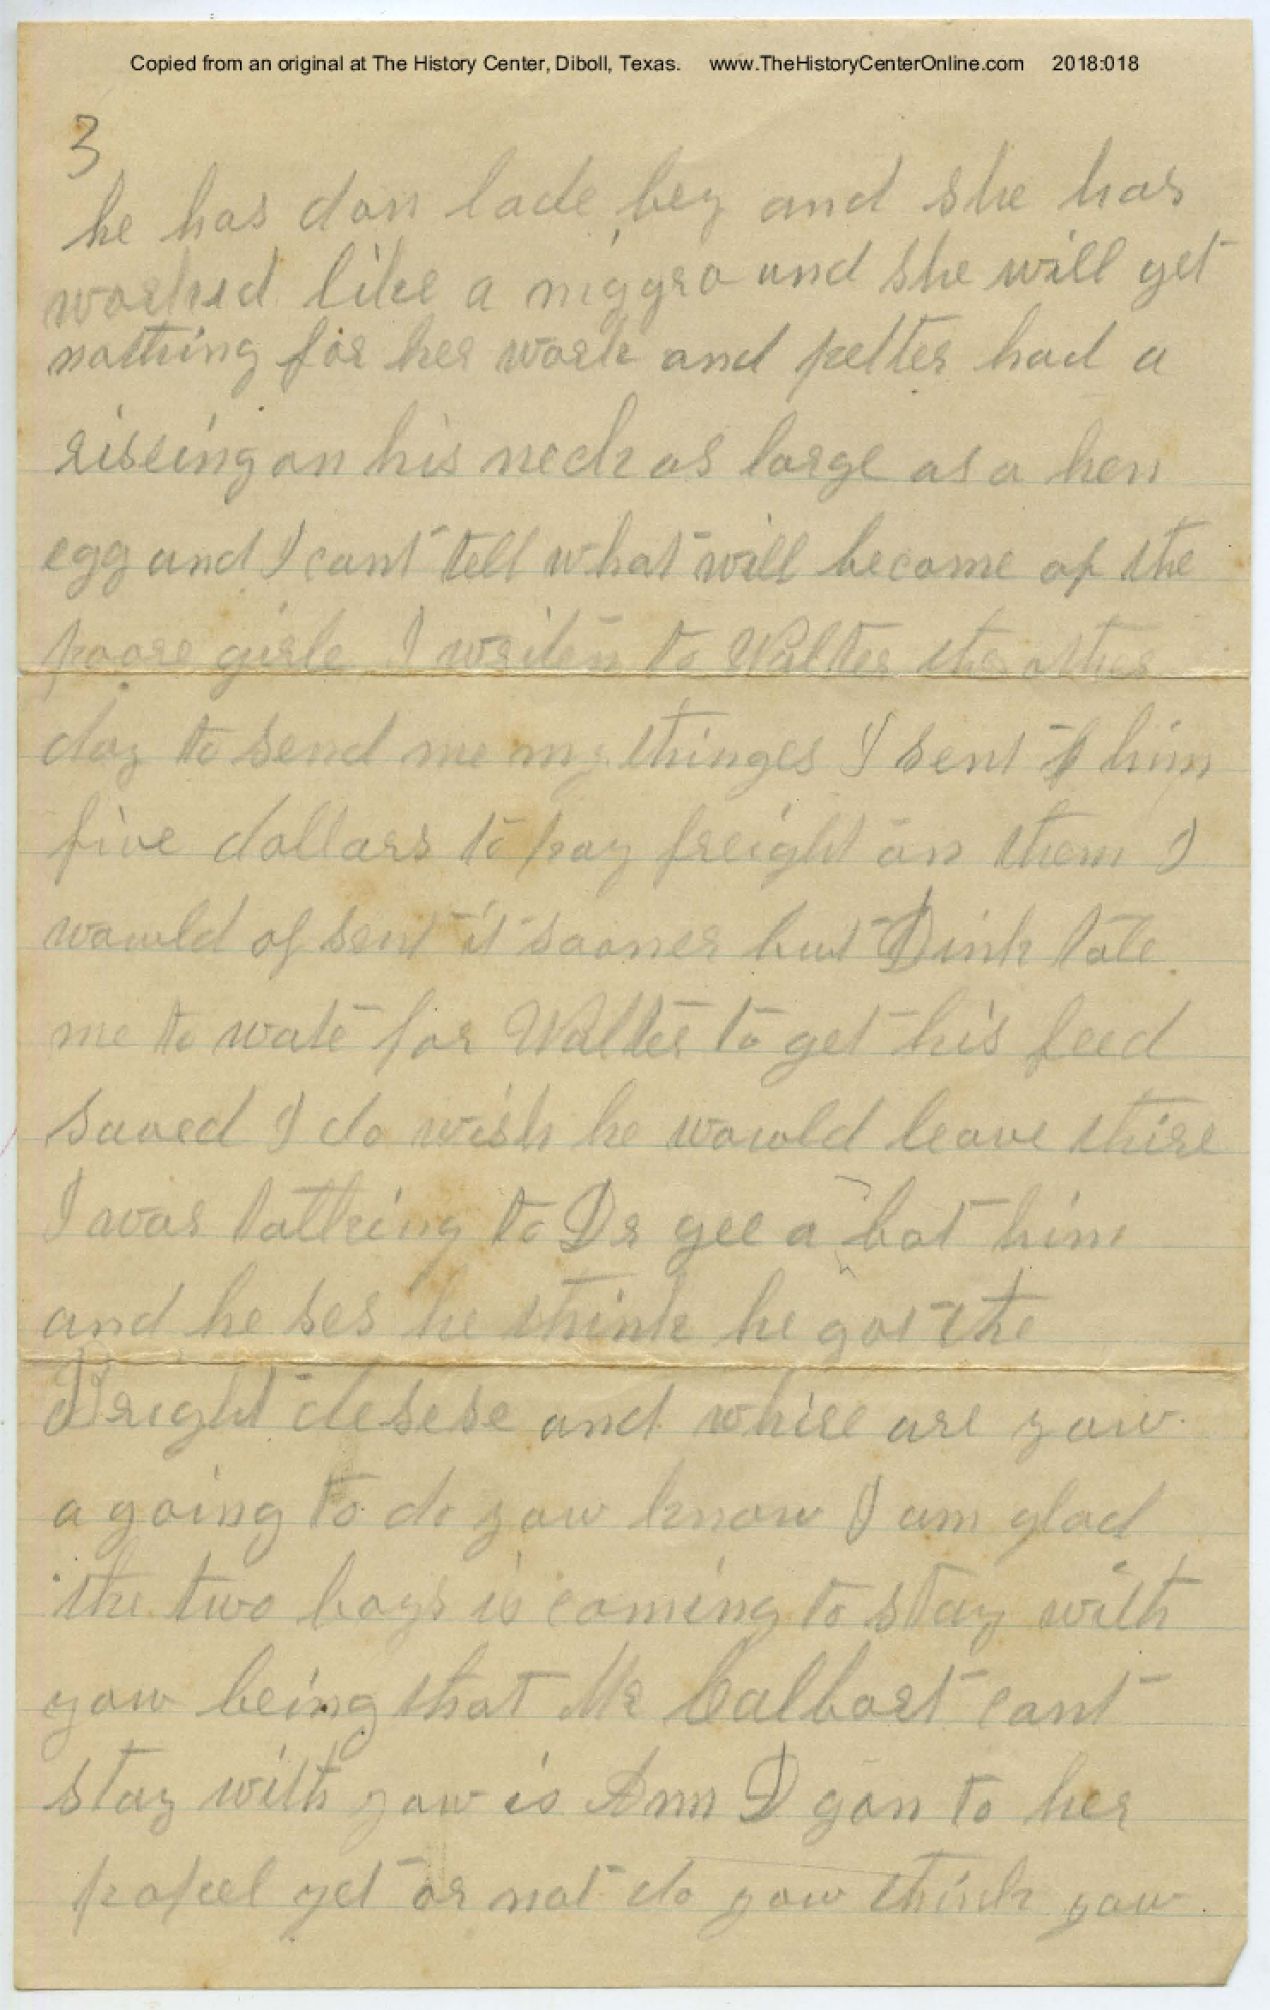 Copied from an original at The History Center, Diboll, Texas. www.TheHistoryCenterOnline.com 2018:018
3
he has don lade bey and she has
worked like a niggro and she will get
nothing for her work and petter had a
rissing on his neck as large as a hen
egg and I cant tell what will become of the
poore girle I writen to Walter the other
day to send me my thinges I sent him
five dollars to pay freight on them I
wowld of sent it sooner but Dink tole
me to wate for Walter to get his feed
saved I do wish he wowld leave thire
I was talking to Dr gee a bot him
and he ses he think he got the
Bright desese and whire are yow
a going to do yow know I am glad
the two boys is coming to stay with
yow being that Mr Calbort cant
stay with yow is Ann D gon to her
popel yet or not do yow think yow